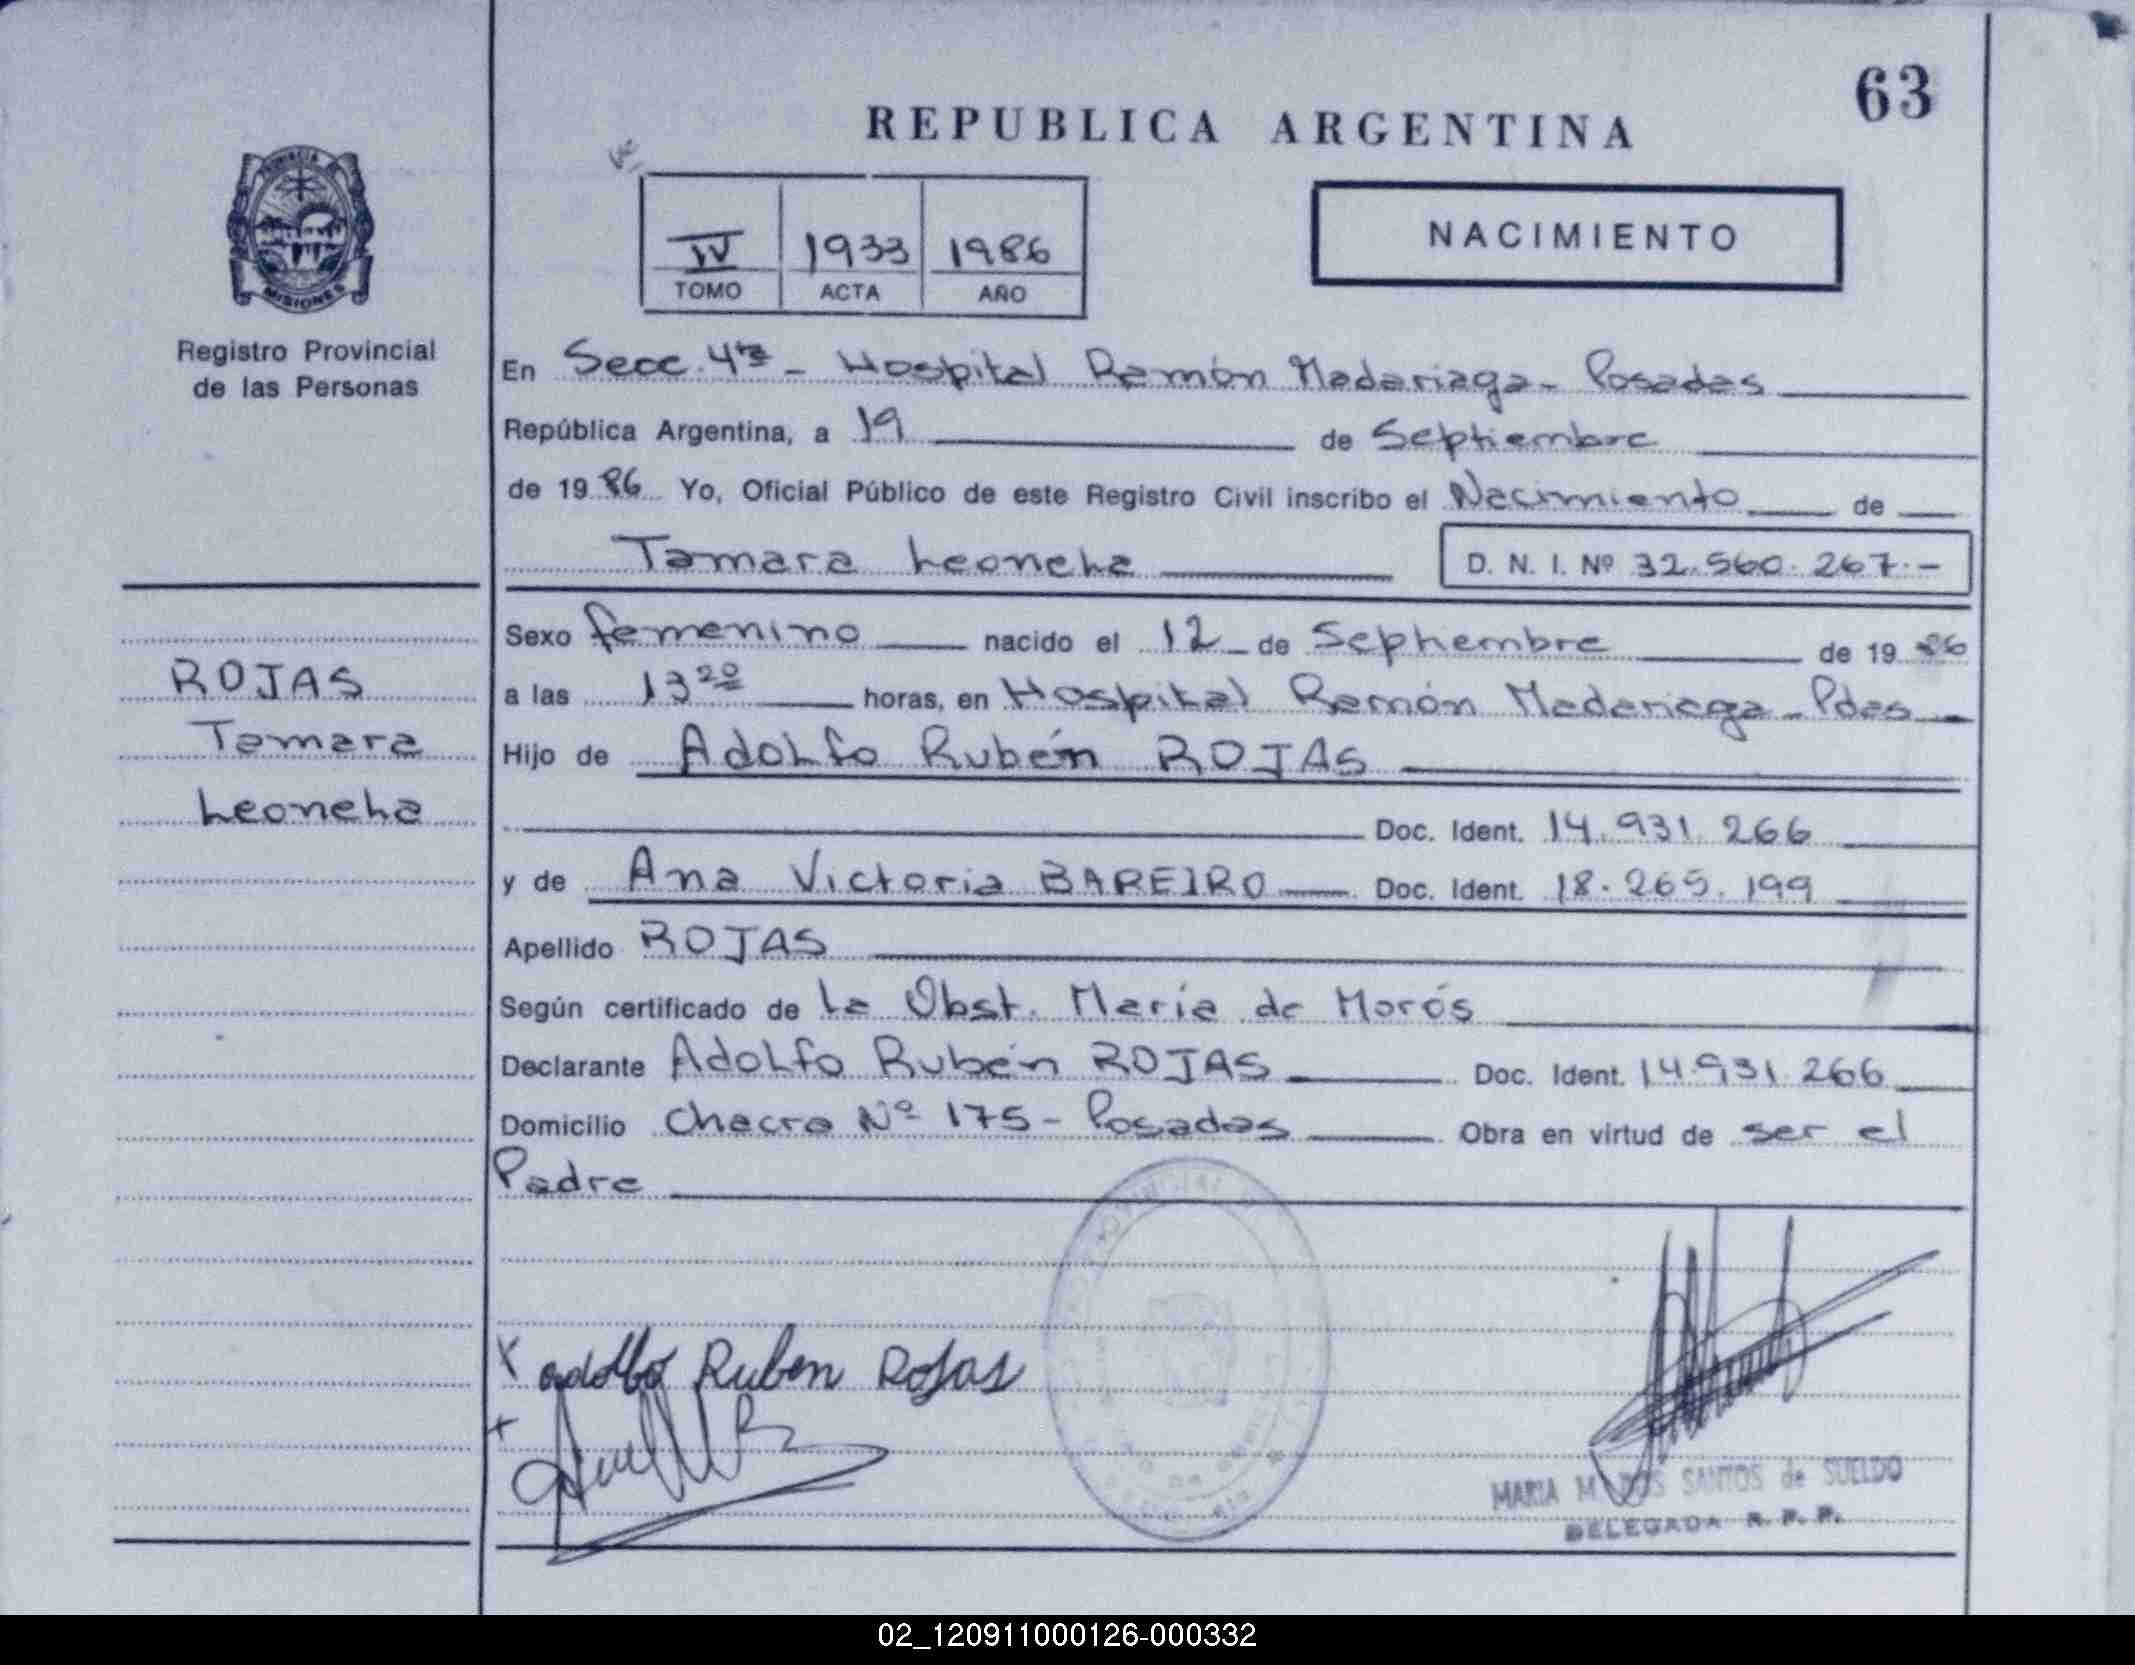 63
REPUBLICA ARGENTINA
PROVINCIA DE
MISIONES
Registro Provincial
de las Personas
IV 1933 1986
TOMO ACTA AÑO
NACIMIENTO
En Secc. 4ta - Hospital Ramón Madariaga - Posadas
República Argentina, a 19 de Septiembre
de 1986 Yo, Oficial Público de este Registro Civil inscribo el Nacimiento de
Tamara Leonela
D. N. I. Nº 32.560.267.-
ROJAS
Tamara
Leonela
Sexo femenino nacido el 12 de Septiembre de 1986
a las 13 20 horas, en Hospital Ramón Madariaga - Pdas
Hijo de Adolfo Rubén ROJAS
Doc. Ident. 14.931.266
y de Ana Victoria BAREIRO Doc. Ident. 18.265.199
Apellido ROJAS
Según certificado de la Obst. María de Morós
Declarante Adolfo Rubén ROJAS Doc. Ident. 14.931.266
Domicilio Chacra Nº 175 - Posadas Obra en virtud de ser el
Padre
x adolfo Ruben Rojas
MARIA M. DOS SANTOS de SUELDO
DELEGADA R. P. P.
02_120911000126-000332